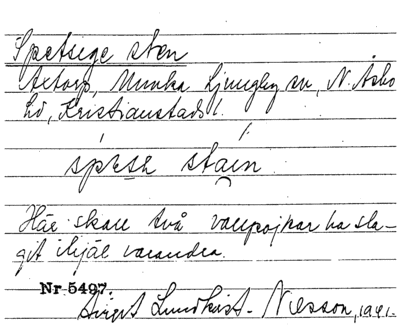 Spetsige sten
Axtorp, Munka Ljungby sn, N. Åsbo
hd, Kristianstads l.
spetse stain
Här skall två vallpojkar ha sla-
git ihjäl varandra.
Nr 5497.
Birgit Lundkvist-Nilsson, 1941.